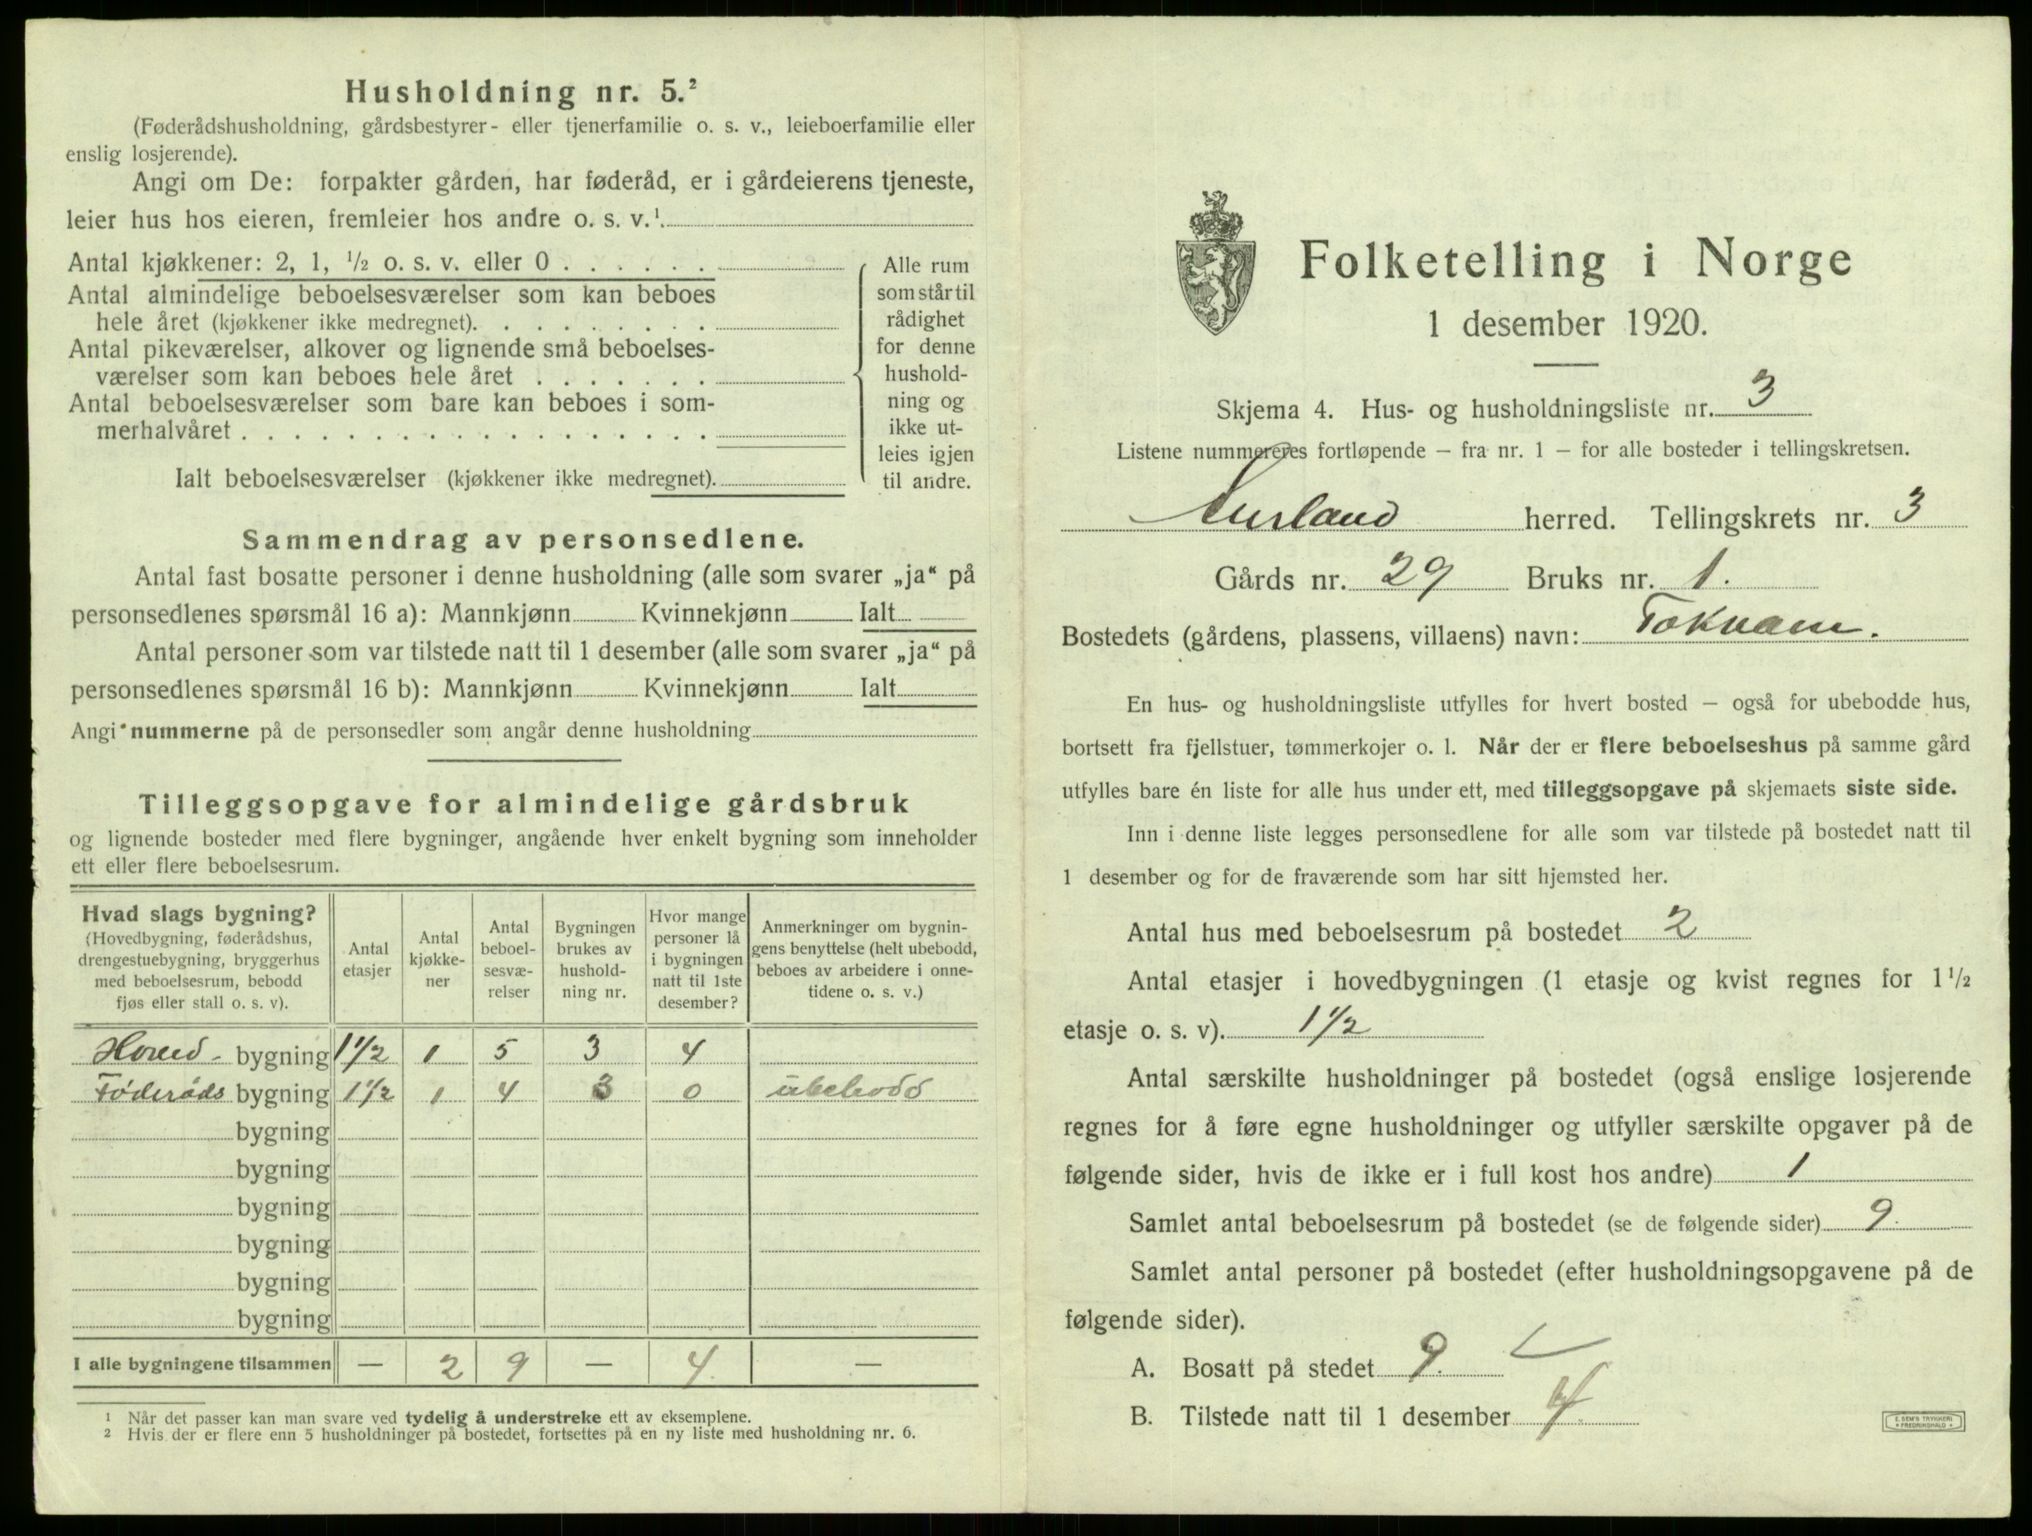 Husholdning nr. 5.²
(Føderådshusholdning, gårdsbestyrer- eller tjenerfamilie o. s. v., leieboerfamilie eller
enslig losjerende).
Angi om De: forpakter gården, har føderåd, er i gårdeierens tjeneste,
leier hus hos eieren, fremleier hos andre o. s. v.¹
Antal kjøkkener: 2, 1, ½ o. s. v. eller 0
Antal almindelige beboelsesværelser som kan beboes
hele året (kjøkkener ikke medregnet).
Antal pikeværelser, alkover og lignende små beboelses-
værelser som kan beboes hele året
Antal beboelsesværelser som bare kan beboes i som-
merhalvåret
Ialt beboelsesværelser (kjøkkener ikke medregnet).
Alle rum
som står til
rådighet
for denne
hushold-
ning og
ikke ut-
leies igjen
til andre.
Sammendrag av personsedlene.
Antal fast bosatte personer i denne husholdning (alle som svarer „ja“ på
personsedlenes spørsmål 16 a): Mannkjønn Kvinnekjønn Ialt
Antal personer som var tilstede natt til 1 desember (alle som svarer „ja“ på
personsedlenes spørsmål 16 b): Mannkjønn Kvinnekjønn Ialt
Angi nummerne på de personsedler som angår denne husholdning
Tilleggsopgave for almindelige gårdsbruk
og lignende bosteder med flere bygninger, angående hver enkelt bygning som inneholder
ett eller flere beboelsesrum.
Hvad slags bygning?
(Hovedbygning, føderådshus,
drengestuebygning, bryggerhus
med beboelsesrum, bebodd
fjøs eller stall o. s. v).
Antal
etasjer
Antal
kjøkke-
ner
Antal
beboel-
sesvæ-
relser
Bygningen
brukes av
hushold-
ning nr.
Hvor mange
personer lå
i bygningen
natt til 1ste
desember?
Anmerkninger om bygnin-
gens benyttelse (helt ubebodd,
beboes av arbeidere i onne-
tidene o. s. v.)
Hoved- bygning 1½ 1 5 3 4
Føderåds bygning 1½ 1 4 3 0 ubebodd
bygning
bygning
bygning
bygning
bygning
bygning
I alle bygningene tilsammen — 2 9 — 4 —
¹ Når det passer kan man svare ved tydelig å understreke ett av eksemplene.
² Hvis der er flere enn 5 husholdninger på bostedet, fortsettes på en ny liste med husholdning nr. 6.
Folketelling i Norge
1 desember 1920.
Skjema 4. Hus- og husholdningsliste nr. 3
Listene nummereres fortløpende – fra nr. 1 – for alle bosteder i tellingskretsen.
Aurland herred. Tellingskrets nr. 3
Gårds nr. 29 Bruks nr. 1.
Bostedets (gårdens, plassens, villaens) navn: Tokvam.
En hus- og husholdningsliste utfylles for hvert bosted – også for ubebodde hus,
bortsett fra fjellstuer, tømmerkojer o. l. Når der er flere beboelseshus på samme gård
utfylles bare én liste for alle hus under ett, med tilleggsopgave på skjemaets siste side.
Inn i denne liste legges personsedlene for alle som var tilstede på bostedet natt til
1 desember og for de fraværende som har sitt hjemsted her.
Antal hus med beboelsesrum på bostedet 2
Antal etasjer i hovedbygningen (1 etasje og kvist regnes for 1½
etasje o. s. v). 1½
Antal særskilte husholdninger på bostedet (også enslige losjerende
regnes for å føre egne husholdninger og utfyller særskilte opgaver på de
følgende sider, hvis de ikke er i full kost hos andre) 1
Samlet antal beboelsesrum på bostedet (se de følgende sider) 9.
Samlet antal personer på bostedet (efter husholdningsopgavene på de
følgende sider).
A. Bosatt på stedet 9.
B. Tilstede natt til 1 desember 4.
E. SEM'S TRYKKERI
FREDRIKSHALD